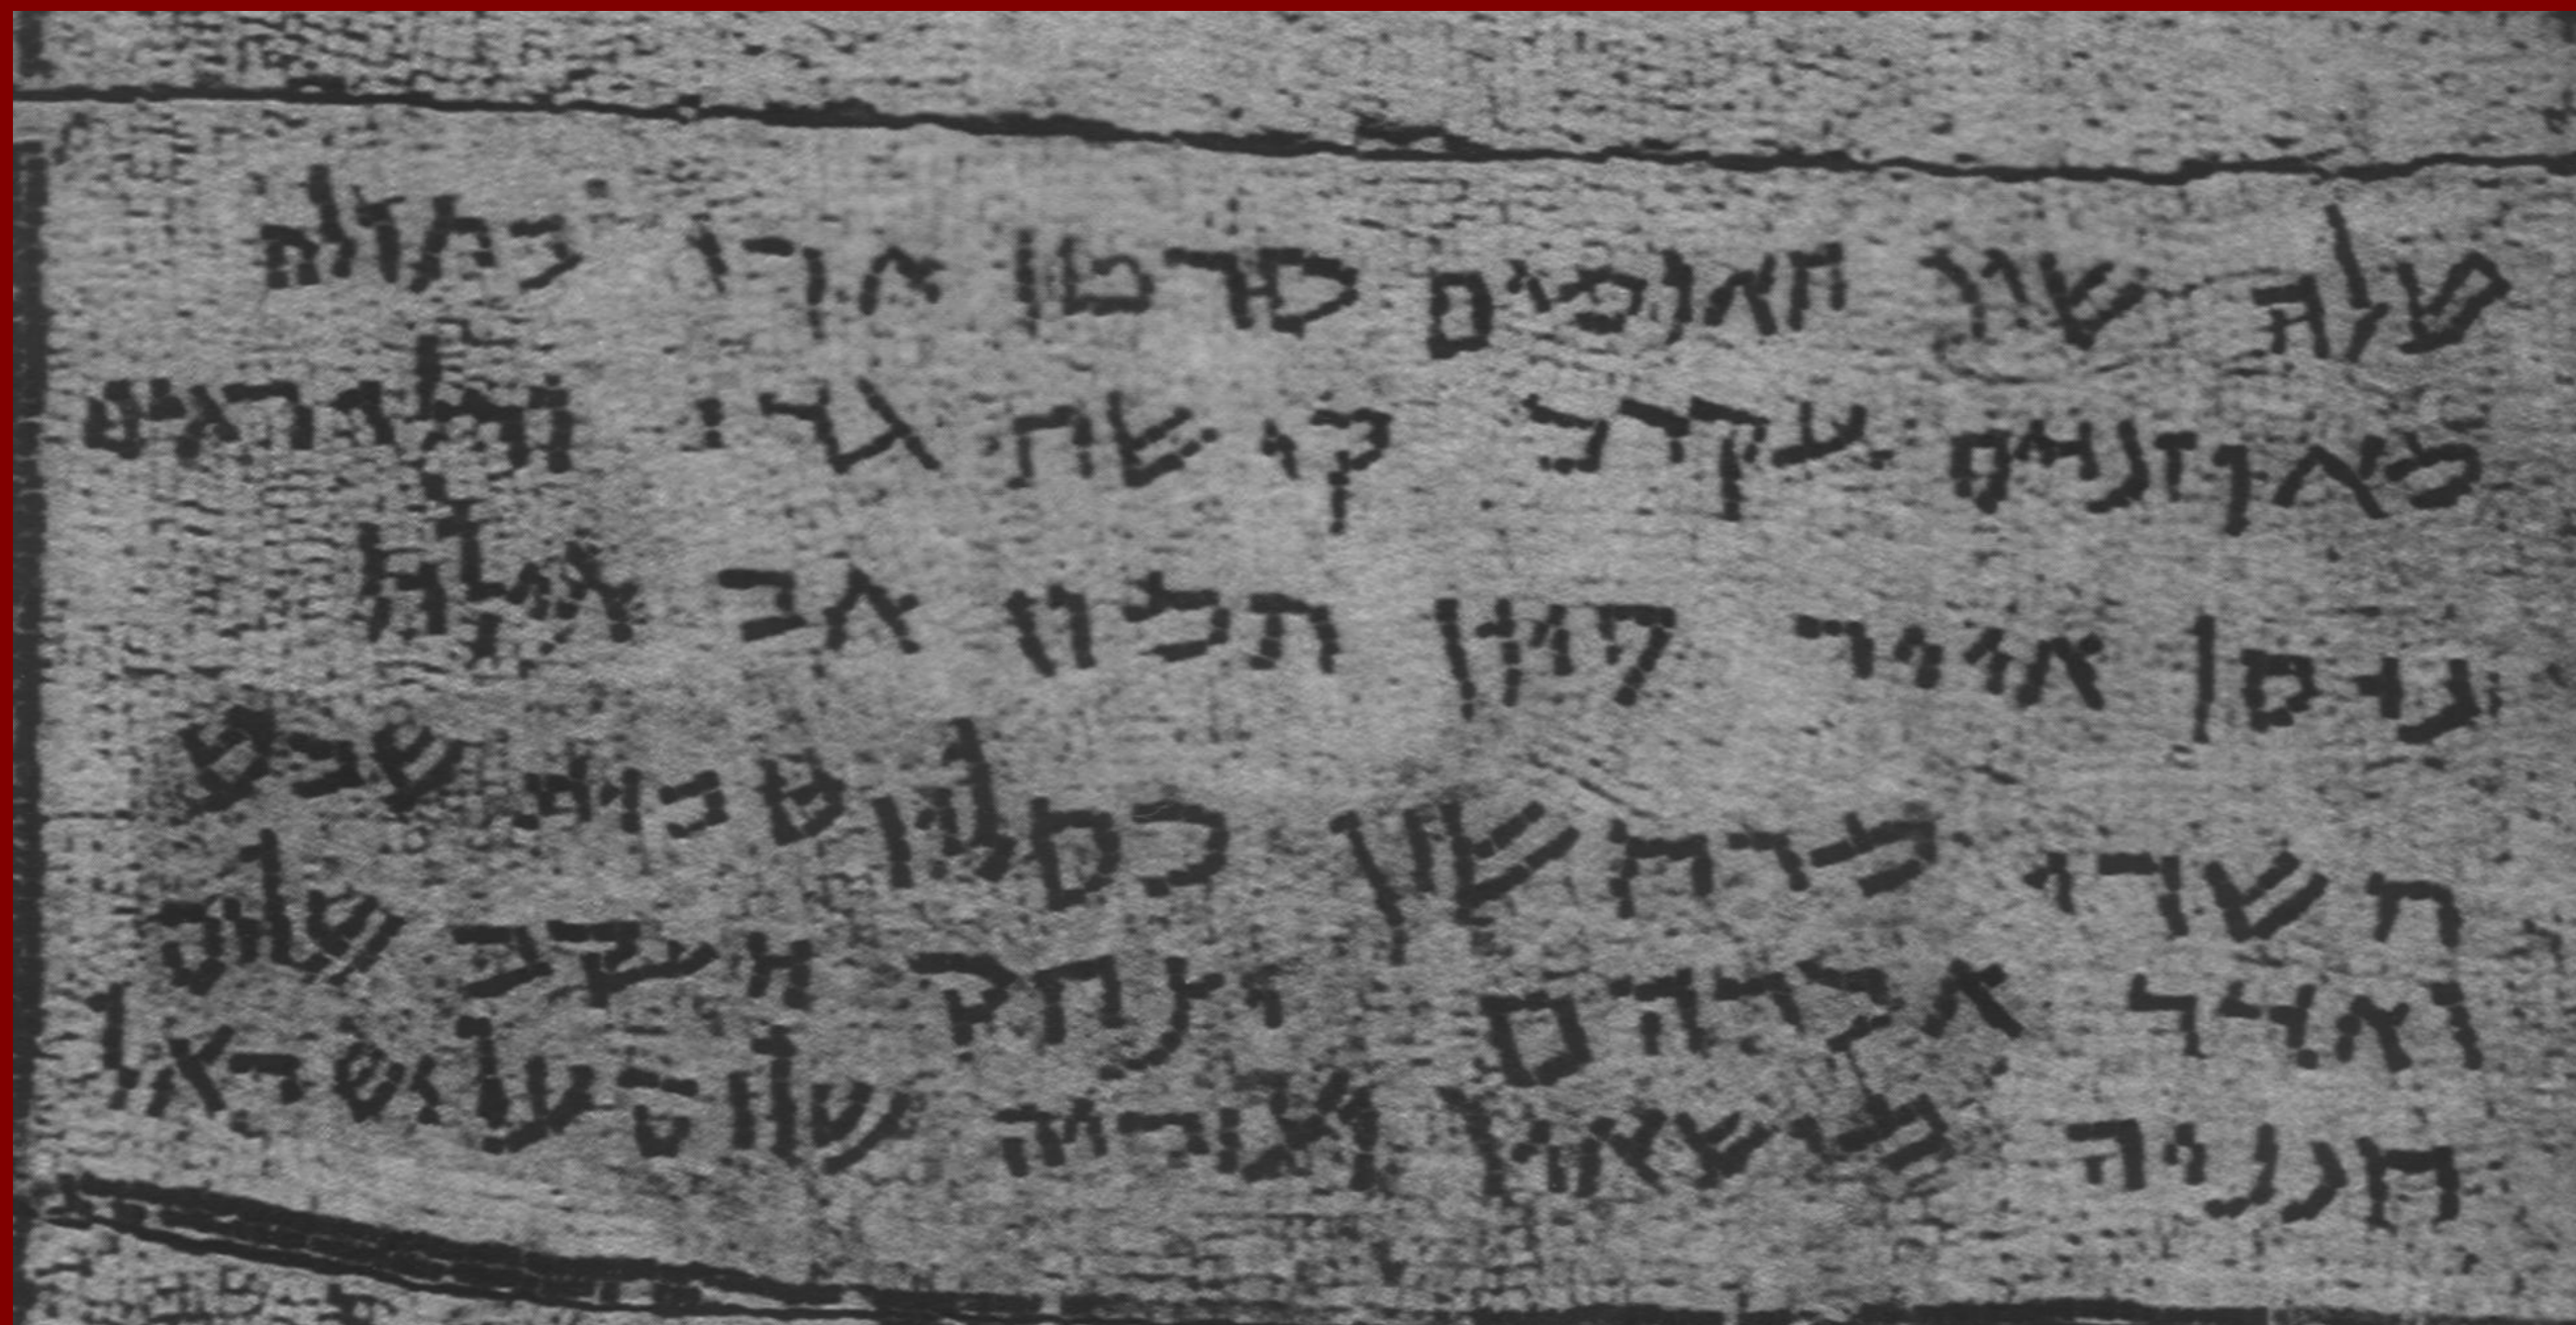 טלה שור תאומים סרטן ארי בתולה
מאוזנים עקרב קישת גדי ודלי דגים
ניסן אייר סיון תמוז אב אילול
תשרי מרחשון כסליו טבית שבט
ואדר אברהם יצחק יעקב שלום
חנניה מישאיל ועזריה שלום על ישראל